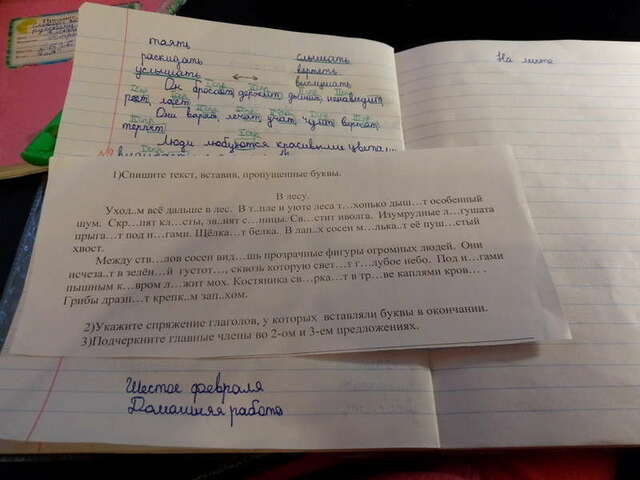 таять
раскидать
услышать
слышать
вертеть
выслушать
На листе
Он бросает, держит, дышит, ненавидит,
реет, лает.
Они варят, лечат, учат, чуют, вертят,
терпят.
Люди любуются красивыми цветами
1)Спишите текст, вставив, пропущенные буквы.
В лесу.
Уход..м всё дальше в лес. В т..пле и уюте леса т…хонько дыш…т особенный
шум. Скр…пят кл…сты, зв..нят с…ницы. Св…стит иволга. Изумрудные л…гушата
прыга…т под н…гами. Щёлка…т белка. В лап..х сосен м…лька..т её пуш…стый
хвост.
Между ств…лов сосен вид…шь прозрачные фигуры огромных людей. Они
исчеза..т в зелён…й густот…, сквозь которую свет…т г…лубое небо. Под н…гами
пышным к…вром л…жит мох. Костяника св…рка…т в тр…ве каплями кров… .
Грибы дразн…т крепк..м зап..хом.
2)Укажите спряжение глаголов, у которых вставляли буквы в окончании.
3)Подчеркните главные члены во 2-ом и 3-ем предложениях.
Шестое февраля
Домашняя работа